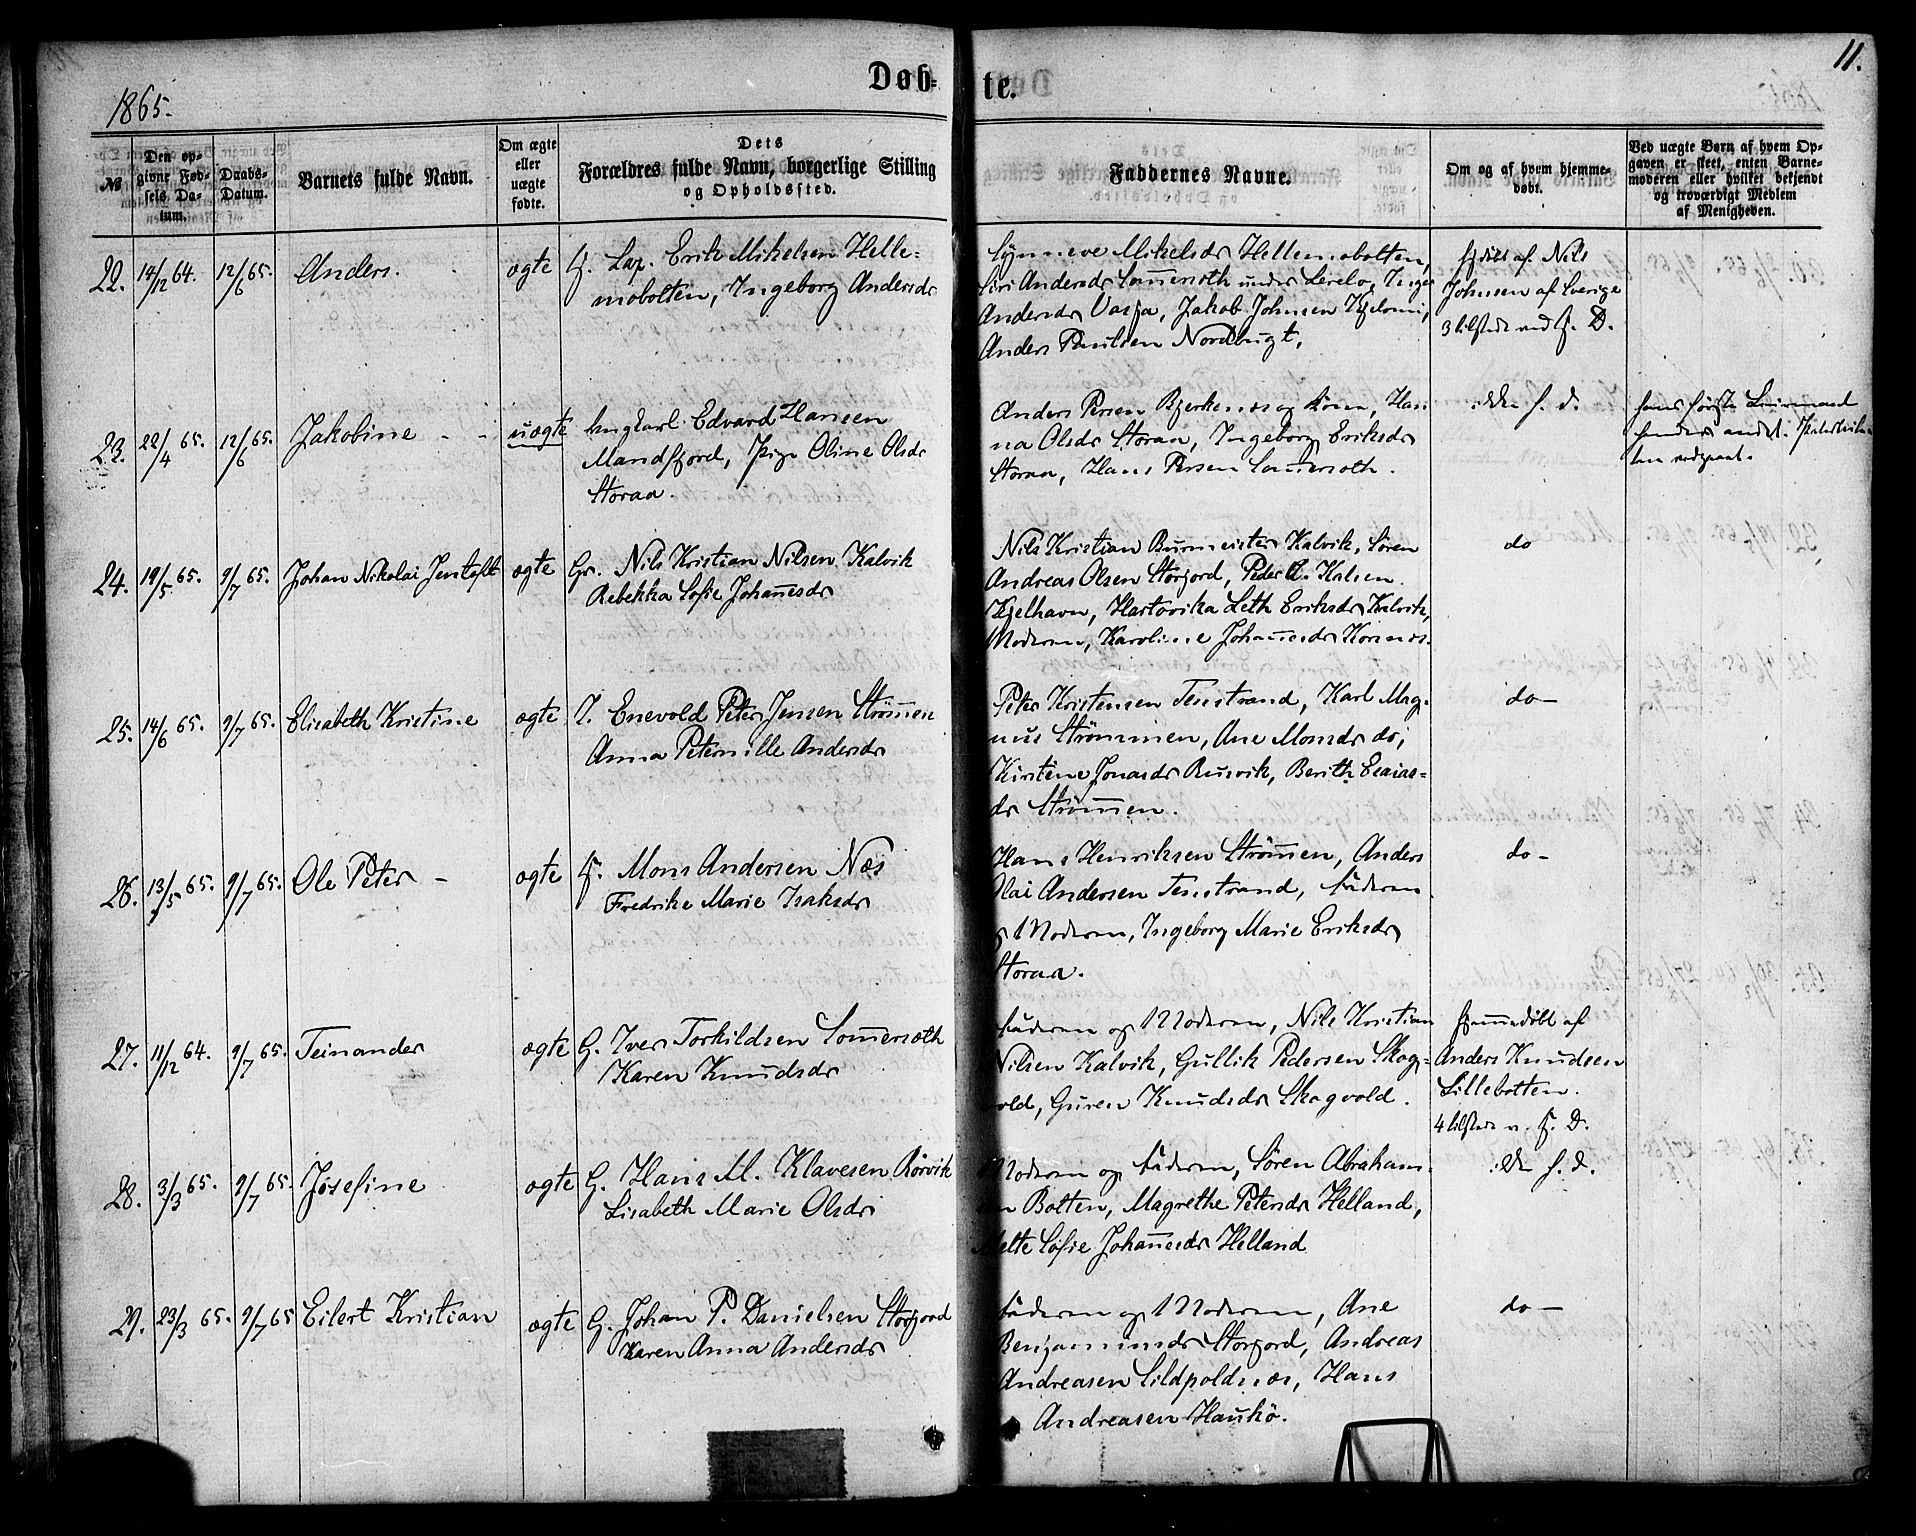 11.
1865.
Døb-
te.
№
Den opgivne Fødsels Datum.
Daabs-Datum.
Barnets fulde Navn.
Om ægte eller uægte fødte.
Dets Forældres fulde Navn, borgerlige Stilling og Opholdssted.
Faddernes Navne.
Om og af hvem hjemmedøbt.
Ved uægte Børn af hvem Opgaven er skeet, enten Barnemoderen eller hvilket bekjendt og troværdigt Medlem af Menigheden.
22. 14/12 64. 12/6 65. Anders. ægte
F. Lap. Erik Mikelsen Helle-
mobotten, Ingeborg Andersdr
Synneve Mikelsdr Hellemobotten,
Siri Andersdr Sommersæth under Lerelv, Inger
Andersdr Vasja, Jakob Johnsen Kjelvmi,
Anders Paulsen Nordbugt,
hjdøbt af Nils
Johnsen af Sverige
3 tilstede ved h. D.
23. 22/4 65. 12/6 65. Jakobine - - uægte
Ungkarl Edvard Hansen
Mandfjord, Pige Oline Olsdr
Storaa.
Anders Persen Bjerknes og Kone, Han
na Olsdr Storaa, Ingeborg Eriksdr
Storaa, Hans Persen Sommersæth.
ikke h. d.
hans første Leiermaal
hendes andet.
24. 19/5 65. 9/7 65. Johan Nikolai Jentoft ægte
Gr. Nils Kristian Nilsen Kalvik
Rebekka Sofie Johannesdr
Nils Kristian Burmeister Kalvik, Søren
Andreas Olsen Storfjord, Peder E. Kalsen
Kjelhavn, Hartvika Leth Eriksdr Kalvik,
Moderen, Karoline Johannesdr Korsnes.
do
25. 14/6 65. 9/7 65. Elisabeth Kristine ægte
I. Enevold Peter Jensen Strømmen
Anna Peternille Andersdr
Peter Kristensen Tenstrand, Karl Mag-
nus Strømmen, Ane Monsdr do,
Kirstine Jonasdr Rusvik, Berith Esaias-
dr Strømmen.
do-
26. 13/5 65. 9/7 65. Ole Peter - ægte
F. Mons Andersen Næs
Fredrike Marie Isaksdr
Hans Henriksen Strømmen, Anders
Olai Andersen Tenstrand, Faderen
og Moderen, Ingeborg Marie Eriksdr
Storaa.
do-
27. 11/12 64. 9/7 65. Teinander ægte
G. Iver Torkildsen Sommersæth
Karen Knudsdr
Faderen og Moderen, Nils Kristian
Nilsen Kalvik, Gullik Pedersen Skog-
vold, Guren Knudsdr Skogvold.
Hjemmedøbt af
Anders Knudsen
Lillebotten.
4 tilstede v. h. D.
28. 3/3 65. 9/7 65. Josefine ægte
G. Hans M. Klavesen Rørvik
Lisabeth Marie Olsdr
Moderen og Faderen, Søren Abraham-
sen Botten, Magrethe Petersdr Helland,
Mette Sofie Johannesdr Helland
ikke h. d.
29. 23/3 65. 9/7 65 Eilert Kristian ægte
G. Johan P. Danielsen Storfjord
Karen Anna Andersdr
Faderen og Moderen, Ane
Benjaminsdr Storfjord, Andreas
Andreasen Sildpoldnes, Hans
Andreasen Haukø.
do-